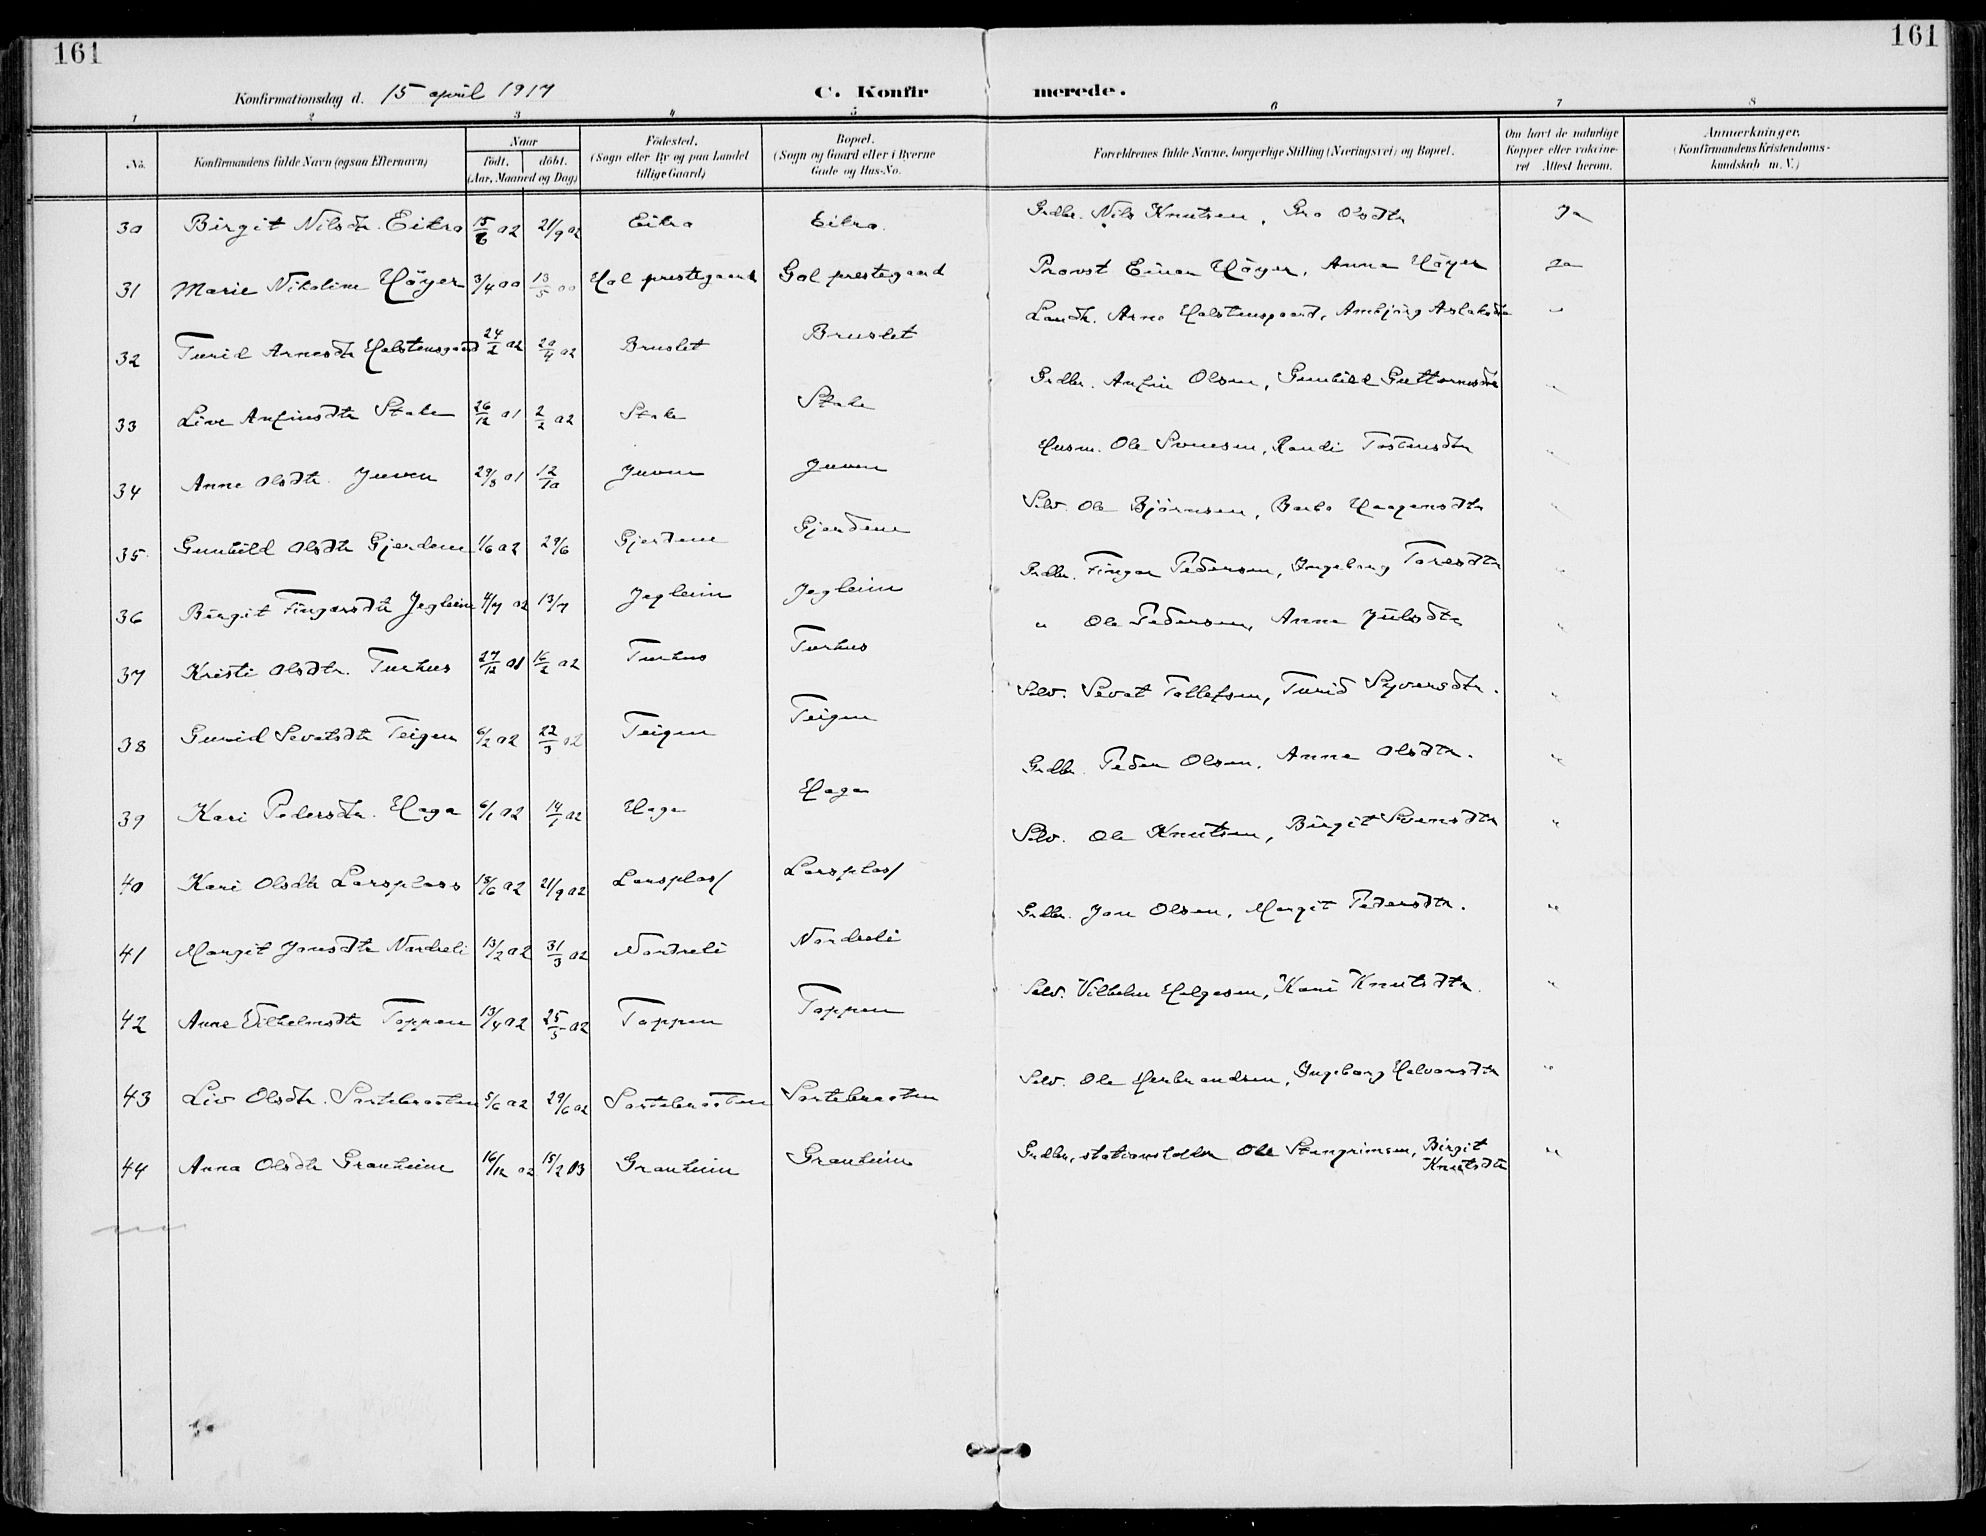 161
161
Konfirmationsdag d. 15 april 1917
C. Konfirmerede.
1 2 3 4 5 6 7 8
No.
Konfirmandens fulde Navn (ogsaa Efternavn)
Naar
födt. döbt.
(Aar, Maaned og Dag)
Födested.
(Sogn eller By og paa Landet
tillige Gaard)
Bopæl.
(Sogn og Gaard eller i Byerne
Gade og Hus-No.
Forældrenes fulde Navne, borgerlige Stilling (Næringsvei) og Bopæl.
Om havt de naturlige
Kopper eller vaccine-
ret Attest herom.
Anmærkninger.
(Konfirmandens Kristendoms-
kundskab m. V.)
30 Birgit Nilsdtr. Eikro 15/6 02 21/9 02 Eikro Eikro. Grdbr. Nils Knutsen, Gro Olsdtr Ja
31 Marie Nikoline Höyer 3/4 00 13/5 00 Hol prestegaard Gol prestegaard Provst Einar Höyer, Anna Höyer Ja
32 Turid Arnesdtr Halstensgaard 24/2 02 20/4 02 Bruslet Bruslet Landh. Arne Halstensgaard, Ambjörg Aslaksdtr "
33 Live Anfinsdtr Stake 26/12 01 2/2 02 Stake Stake Grdbr. Anfin Olsen, Gunhild Guttormsdtr "
34 Anne Olsdtr. Juven 29/3 01 12/10 Juven Juven Husm. Ole Svensen, Randi Tostensdtr "
35 Gunhild Olsdtr Gjerdene 1/6 02 29/6 Gjerdene Gjerdene Selv. Ole Björnsen, Barbo Haagensdtr "
36 Birgit Fingarsdtr Jegleim 4/7 02 13/7 Jegleim Jegleim Grdbr. Fingar Pedersen, Ingeborg Toresdtr "
37 Kristi Olsdtr. Turhus 27/12 01 16/2 02 Turhus Turhus " Ole Pedersen, Anne Juulsdtr "
38 Gurid Sevatsdtr Teigen 6/2 02 22/3 02 Teigen Teigen Selv. Sevat Tollefsen, Turid Syversdtr. "
39 Kari Pedersdtr. Haga 6/1 02 19/1 02 Haga Haga Grdbr. Peder Olsen, Anne Olsdtr. "
40 Kari Olsdtr Larsplass 18/6 02 21/9 02 Larsplass Larsplass Selv. Ole Knutsen, Birgit Svensdtr "
41 Margit Jonsdtr Nordreli 13/2 02 31/3 02 Nordreli Nordreli Grdbr. Jon Olsen, Margit Pedersdtr. "
42 Anne Vilhelmsdtr Toppen 13/4 02 25/5 02 Toppen Toppen Selv. Vilhelm Helgesen, Kari Knutsdtr. "
43 Liv Olsdtr. Sortebraaten 5/6 02 29/6 02 Sortebraaten Sortebraaten Selv. Ole Herbrandsen, Ingeborg Halvorsdtr "
44 Anna Olsdtr Granheim 16/12 02 15/2 03 Granheim Granheim Grdbr., stationsholder Ole Stengrimsen, Birgit Knutsdtr "